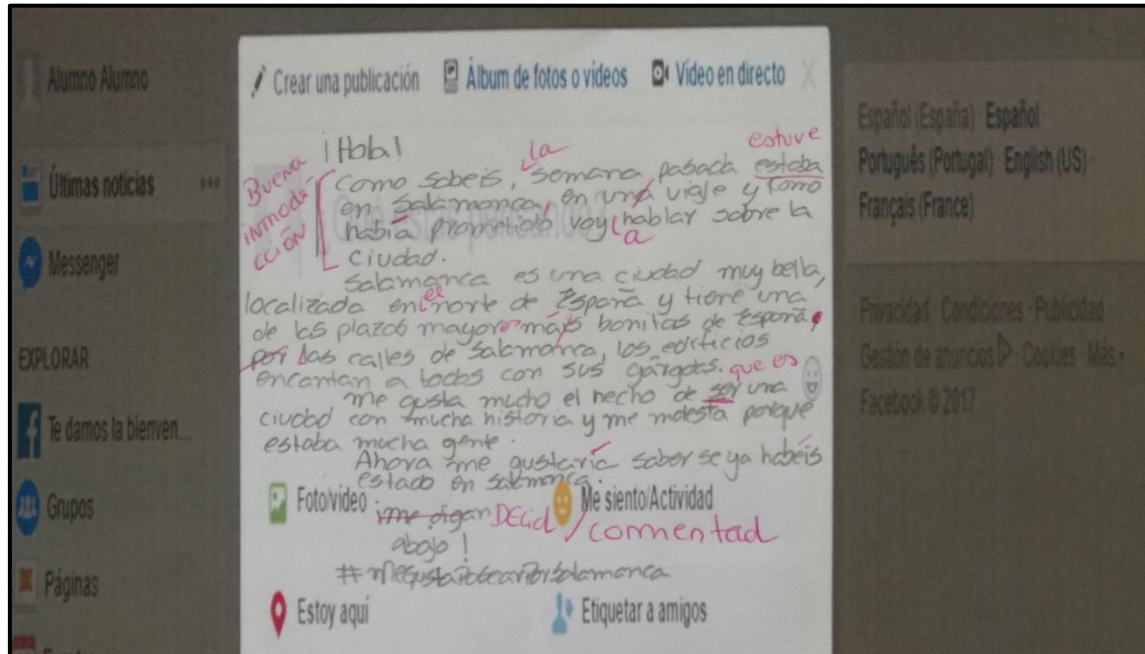 Alumno Alumno
Últimas noticias
Messenger
EXPLORAR
Te damos la bienven...
Grupos
Páginas
Crear una publicación Álbum de fotos o vídeos Vídeo en directo X
¡Hola!
la estuve
Como sabeis, semana pasada estaba
en Salamanca, en una viaje y como
había prometido voy hablar sobre la
a
ciudad.
BUENA
INTRODU-
CCIÓN
Salamanca es una ciudad muy bella,
localizada en norte de España y tiene una
el
de las plazas mayor más bonitas de España.
por las calles de Salamanca, los edificios
encantan a todos con sus gárgolas.
que es
me gusta mucho el hecho de ser una
ciudad con mucha historia y me molesta porque
estaba mucha gente.
Ahora me gustaría saber se ya habéis
estado en Salamanca.
Foto/vídeo Me siento/Actividad
¡me digan DECID / comentad
abajo!
#MeGustaPasearPorSalamanca
Estoy aquí Etiquetar a amigos
Español (España) · Español ·
Português (Portugal) · English (US) ·
Français (France)
Privacidad · Condiciones · Publicidad
Gestión de anuncios · Cookies · Más
Facebook © 2017